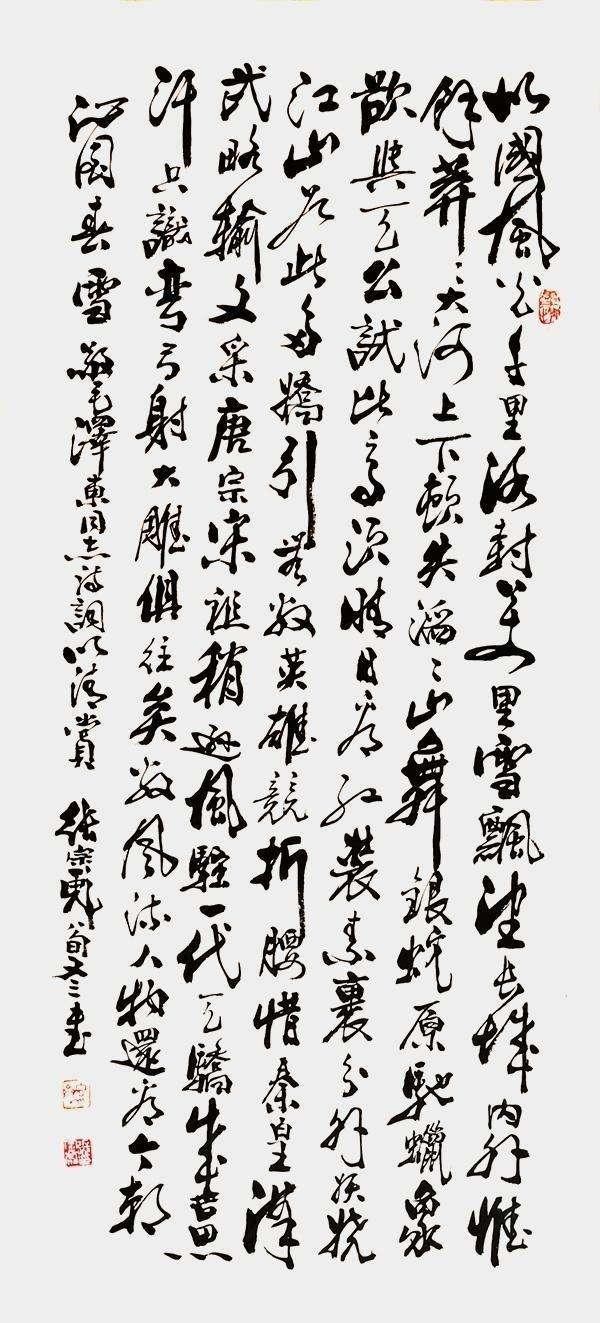 北國風光千里冰封万里雪飄望長城内外惟
餘莽々大河上下頓失滔々山舞銀蛇原馳蠟象
欲與天公試比高須晴日看紅裝素裹分外妖嬈
江山如此多嬌引無數英雄競折腰惜秦皇漢
武略輸文采唐宗宋祖稍遜風騷一代天驕成吉思
汗只識彎弓射大雕俱往矣數風流人物還看今朝
沁园春雪 敬毛澤東同志詩詞以清賞 張宗 旬又三書